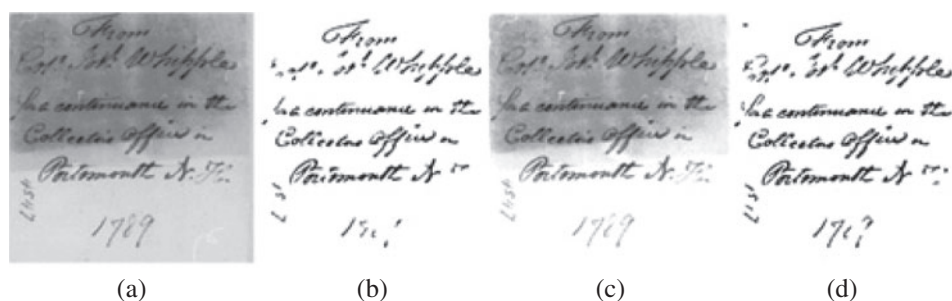 From
Whipple
for a continuance in the
Collectors Office in
Portsmouth N. H.
1789
(a)
From
Whipple
a continuance in the
Collectors Office in
Portsmouth N
(b)
From
Whipple
for a continuance in the
Collectors Office in
Portsmouth N. H.
1789
(c)
From
Whipple
for a continuance in the
Collectors Office in
Portsmouth N
(d)